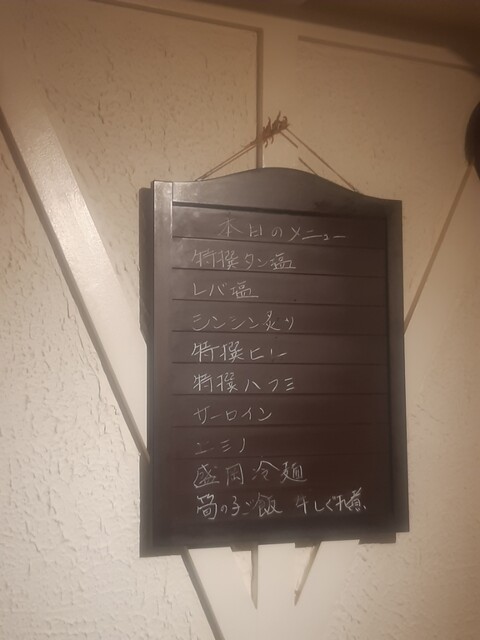 本日のメニュー
特撰タン塩
レバ塩
シンシン炙り
特撰ヒレー
特撰ハラミ
サーロイン
ミノ
盛岡冷麺
筍の子ご飯 牛しぐれ煮